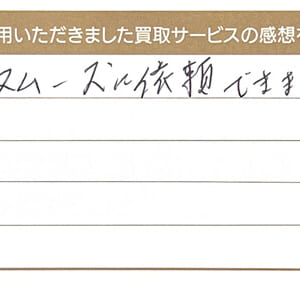 用いただきました買取サービスの感想を
スムーズに依頼できま